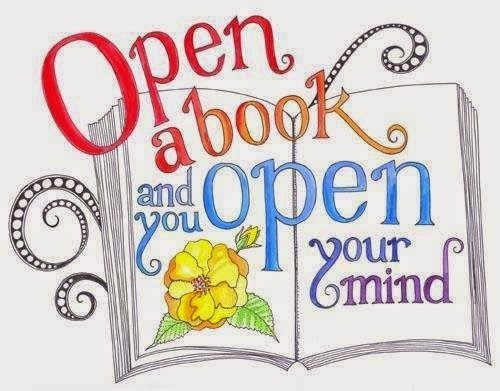 Open
a book
and you open
your
mind